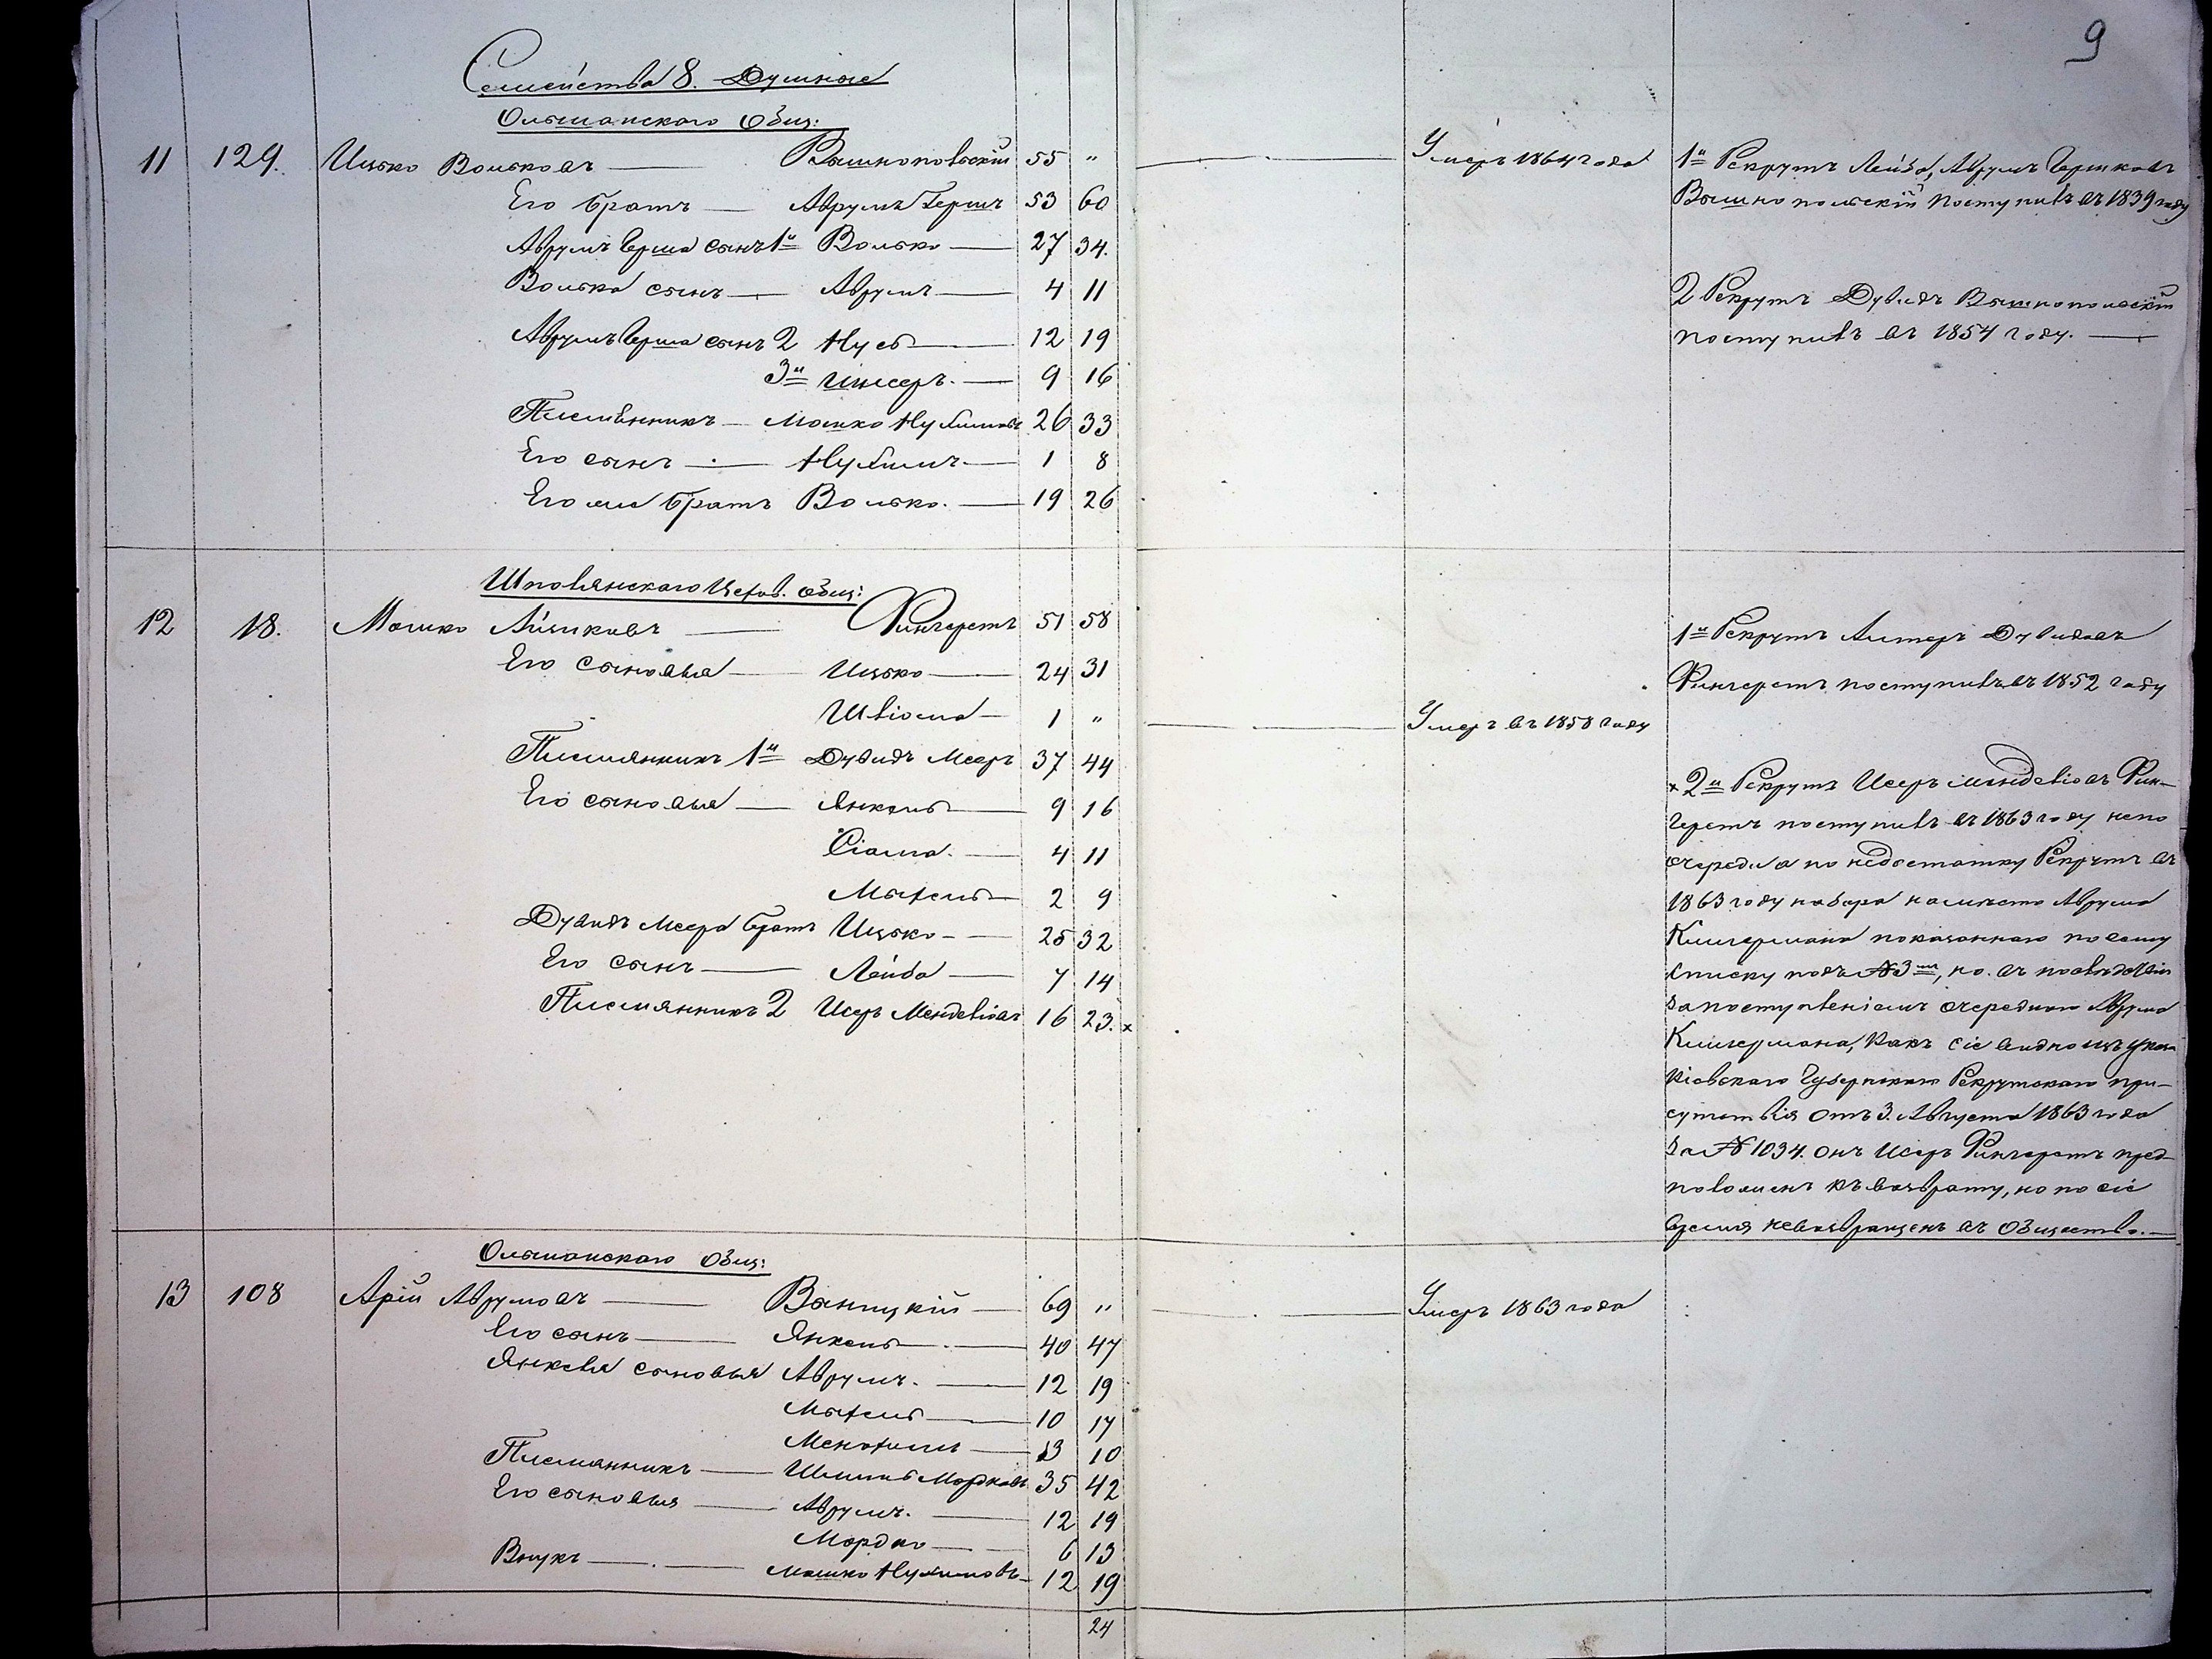 9
Семейства 8. Душные
Ольшанскаго Общ:
11 129. Ицько Вольковъ — Вышнопольскій 55 " — Умеръ 1864 года
Его братъ — Аврумъ Гершъ 53 60
Аврумъ Герша сынъ 1й Волько — 27 34.
Волька сынъ — Аврумъ — 4 11
Аврумъ Герша сынъ 2 Нусь — 12 19
3й — 9 16
Племѣнникъ — Мошко Нухимовъ 26 33
Его сынъ — Нухимъ — 1 8
Его же братъ Волько. — 19 26
1й Рекрутъ Лейба, Аврумъ Гершковъ
Вышнопольскій поступилъ въ 1839 году
2 Рекрутъ Дувидъ Вышнопольскій
поступилъ въ 1854 году. —
Шполянскаго общ:
12 18. Мошко Айзиковъ — Фингеретъ 51 58
Его сыновья — Ицько — 24 31
Шліома — 1 " — Умеръ въ 1858 году
Племянникъ 1й Дувидъ Мееръ 37 44
Его сыновья — Янкель — 9 16
Сіома. — 4 11
Мыхель — 2 9
Дувидъ Меера братъ Ицько — 25 32
Его сынъ — Лейба — 7 14
Племянникъ 2 Исеръ Менделіовъ 16 23. х
1й Рекрутъ Алтеръ Дувидовъ
Фингеретъ поступилъ въ 1852 году
х 2й Рекрутъ Исеръ Менделіовъ Фин-
геретъ поступилъ въ 1863 году не по
очереди а по недостатку Рекрутъ въ
1863 году набора на мѣсто Аврума
Клигермана показаннаго по сему
списку подъ № 3мъ, но въ
за поступленіемъ очереднаго Аврума
Клигермана, какъ сіе видно изъ указа
Кіевскаго Губернскаго Рекрутскаго при-
сутствія отъ 3. Августа 1863 года
за № 1034. онъ Исеръ Фингеретъ пред-
положенъ къ возврату, но по сіе
время невозвращенъ въ общество. —
Ольшанскаго Общ:
13 108 Арій Аврумовъ — 69 " — Умеръ 1863 года
Его сынъ — Янкель — 40 47
Янкеля сыновья Аврумъ. — 12 19
Мыхель — 10 17
— 3 10
Племянникъ — Шмиль Мордковъ 35 42
Его сыновья — Аврумъ. — 12 19
Мордко — 6 13
Внукъ — Мошко Нухимовъ — 12 19
24